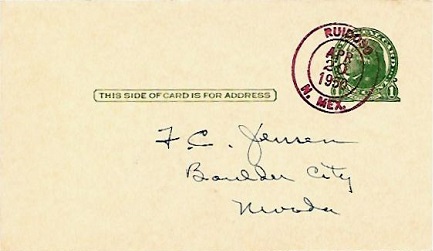 RUIDOSO
APR
1950
N. MEX.
THIS SIDE OF CARD IS FOR ADDRESS
F. C. Jensen
Boulder City
Nevada